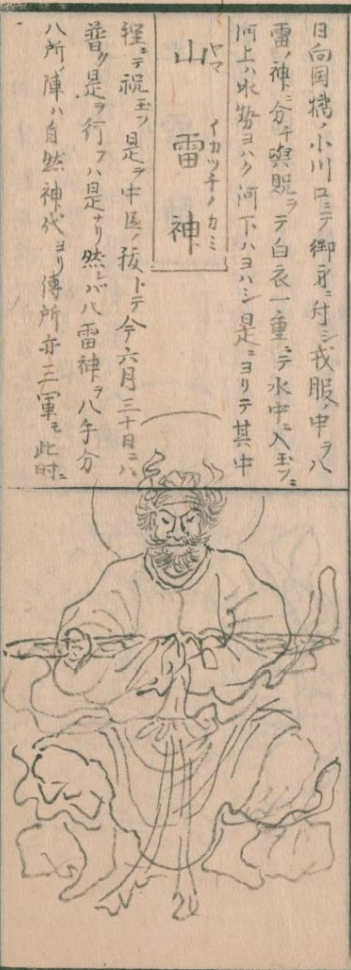 日向国橘ノ小川口ニテ御身ニ付シ我服ノ中ヲ八
雷ノ神ニ分チ與賜ヲテ白衣一重ニテ水中ニ入玉フニ
河上ハ水勢ヨハク河下ハヨハシ是ニヨリテ其中
山雷神
ヤマイカツチノカミ
程ニテ祝玉フ是ヲ中臣ノ祓トテ今六月三十日ニハ
普ク是ヲ行フハ是ナリ然レバ八雷神ヲ八手分
八所ノ陣ハ自然神代ヨリ傳所亦三軍モ此時ニ